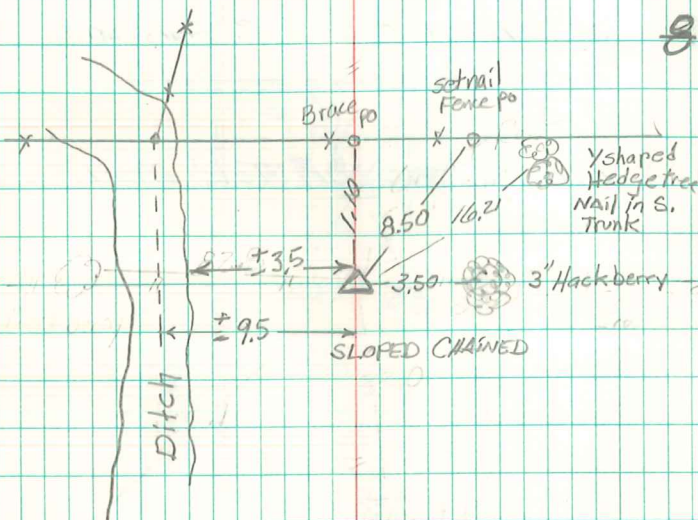 8
setnail
Fence po
Brace po
Y shaped
Hedgetree
NAil in S.
Trunk
8.50
16.21
±3.5
3.50
3" Hackberry
± 9.5
SLOPED CHAINED
Ditch